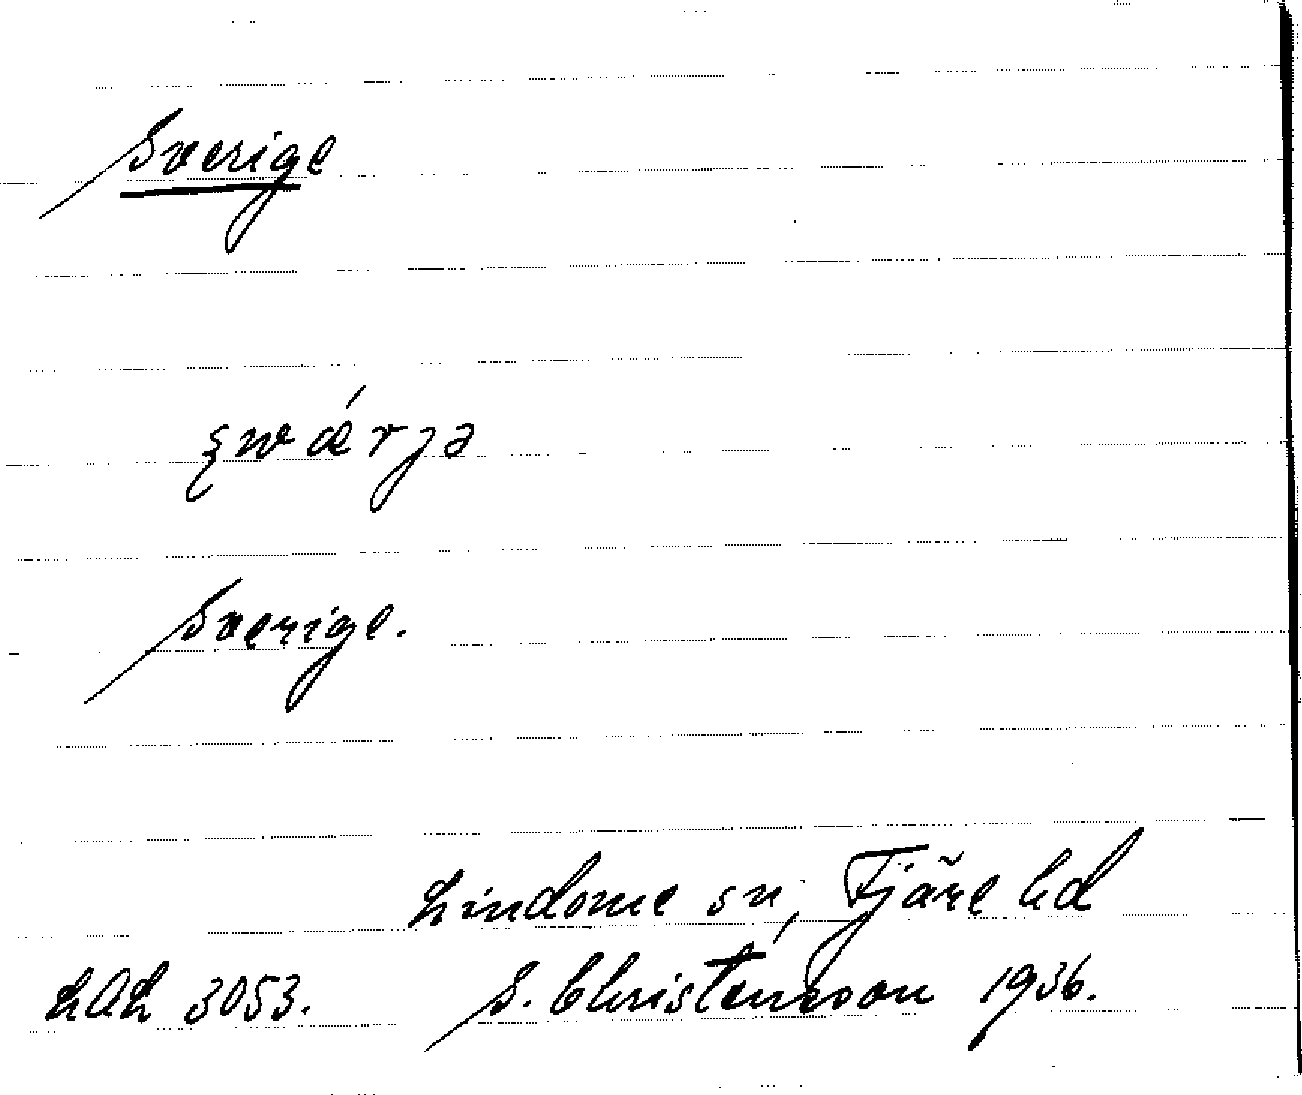 Sverige
swǽrjə
Sverige.
Lindome sn, Fjäre hd
LAL 3053. S. Christénsson 1936.